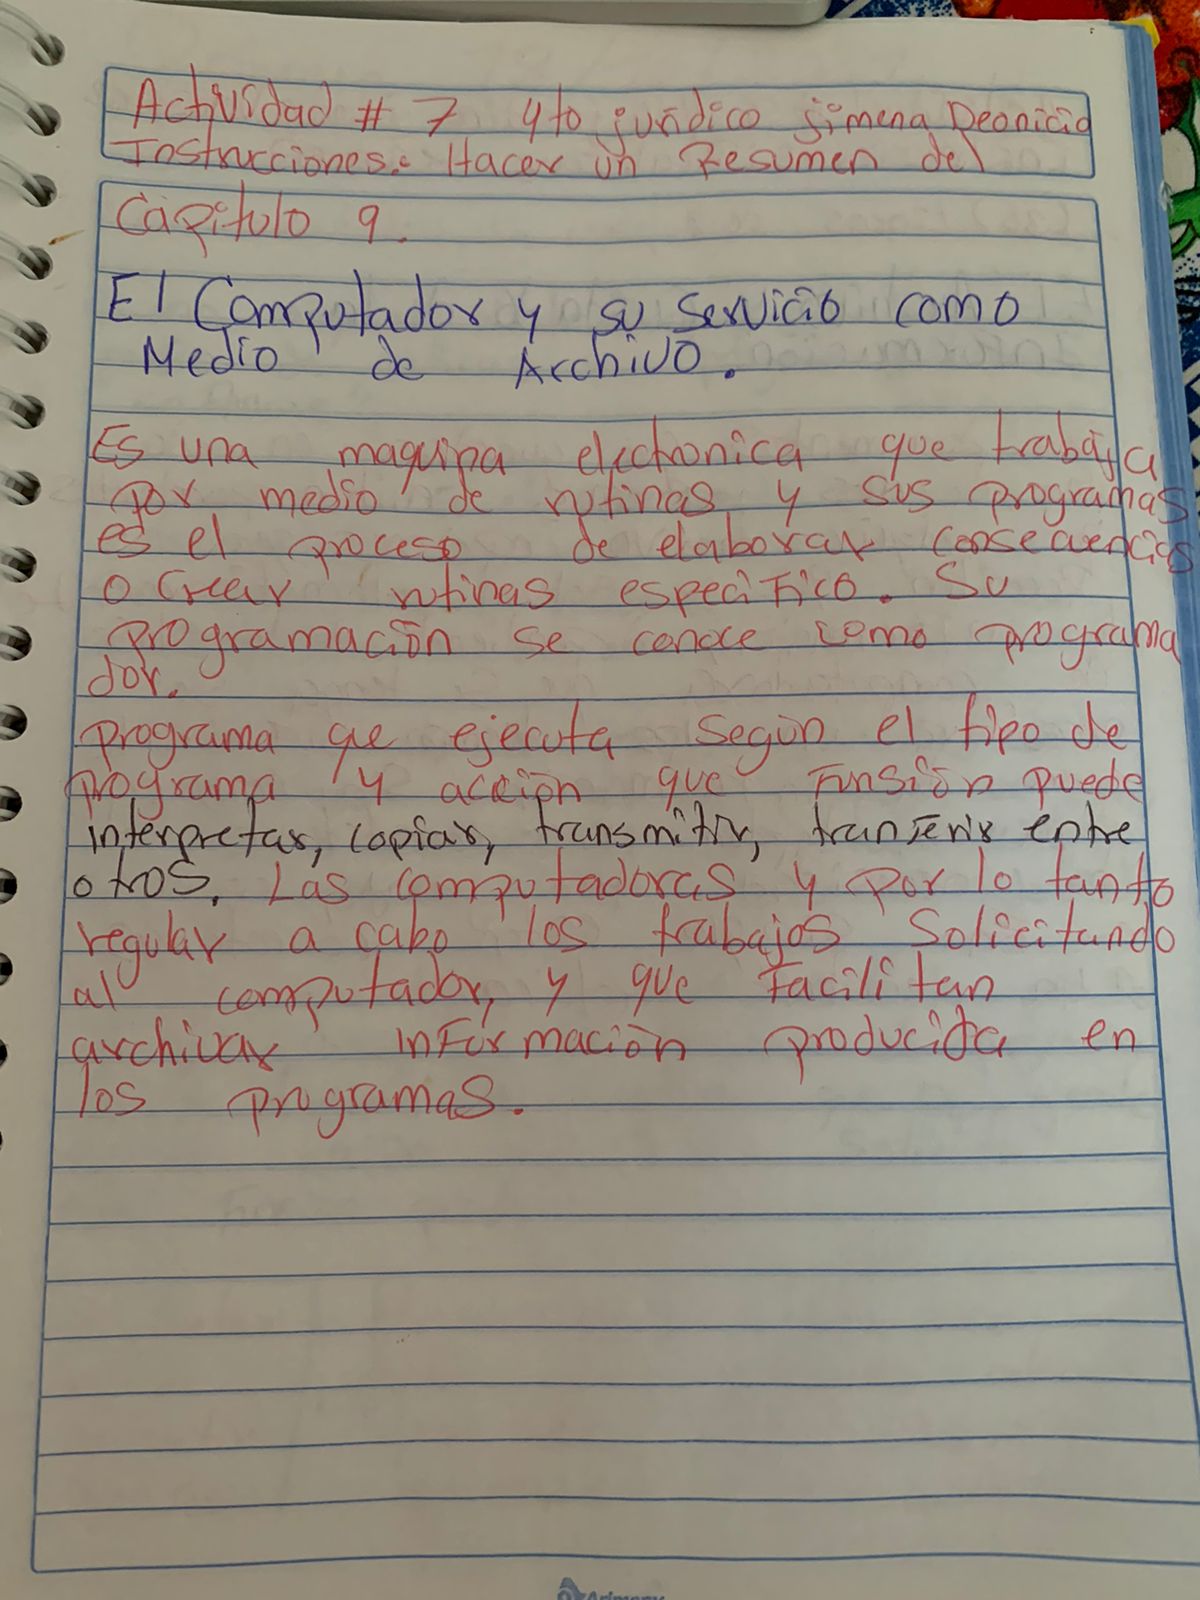 Actividad # 7 4to jurídico jimena Deonicio
Instrucciones: Hacer un Resumen del
Capitulo 9.
El Computador y su servicio como
Medio de Archivo.
Es una maquina electronica que trabaja
por medio de rutinas y sus programas
es el proceso de elaborar consecuencias
o crear rutinas especifico. Su
programación se conoce como programa
dor.
programa que ejecuta según el tipo de
programa y acción que funsión puede
interpretar, copiar, transmitir, tranferir entre
otros. Las computadoras y por lo tanto
regular a cabo los trabajos solicitando
al computador, y que facilitan
archivar información producida en
los programas.
Arimany